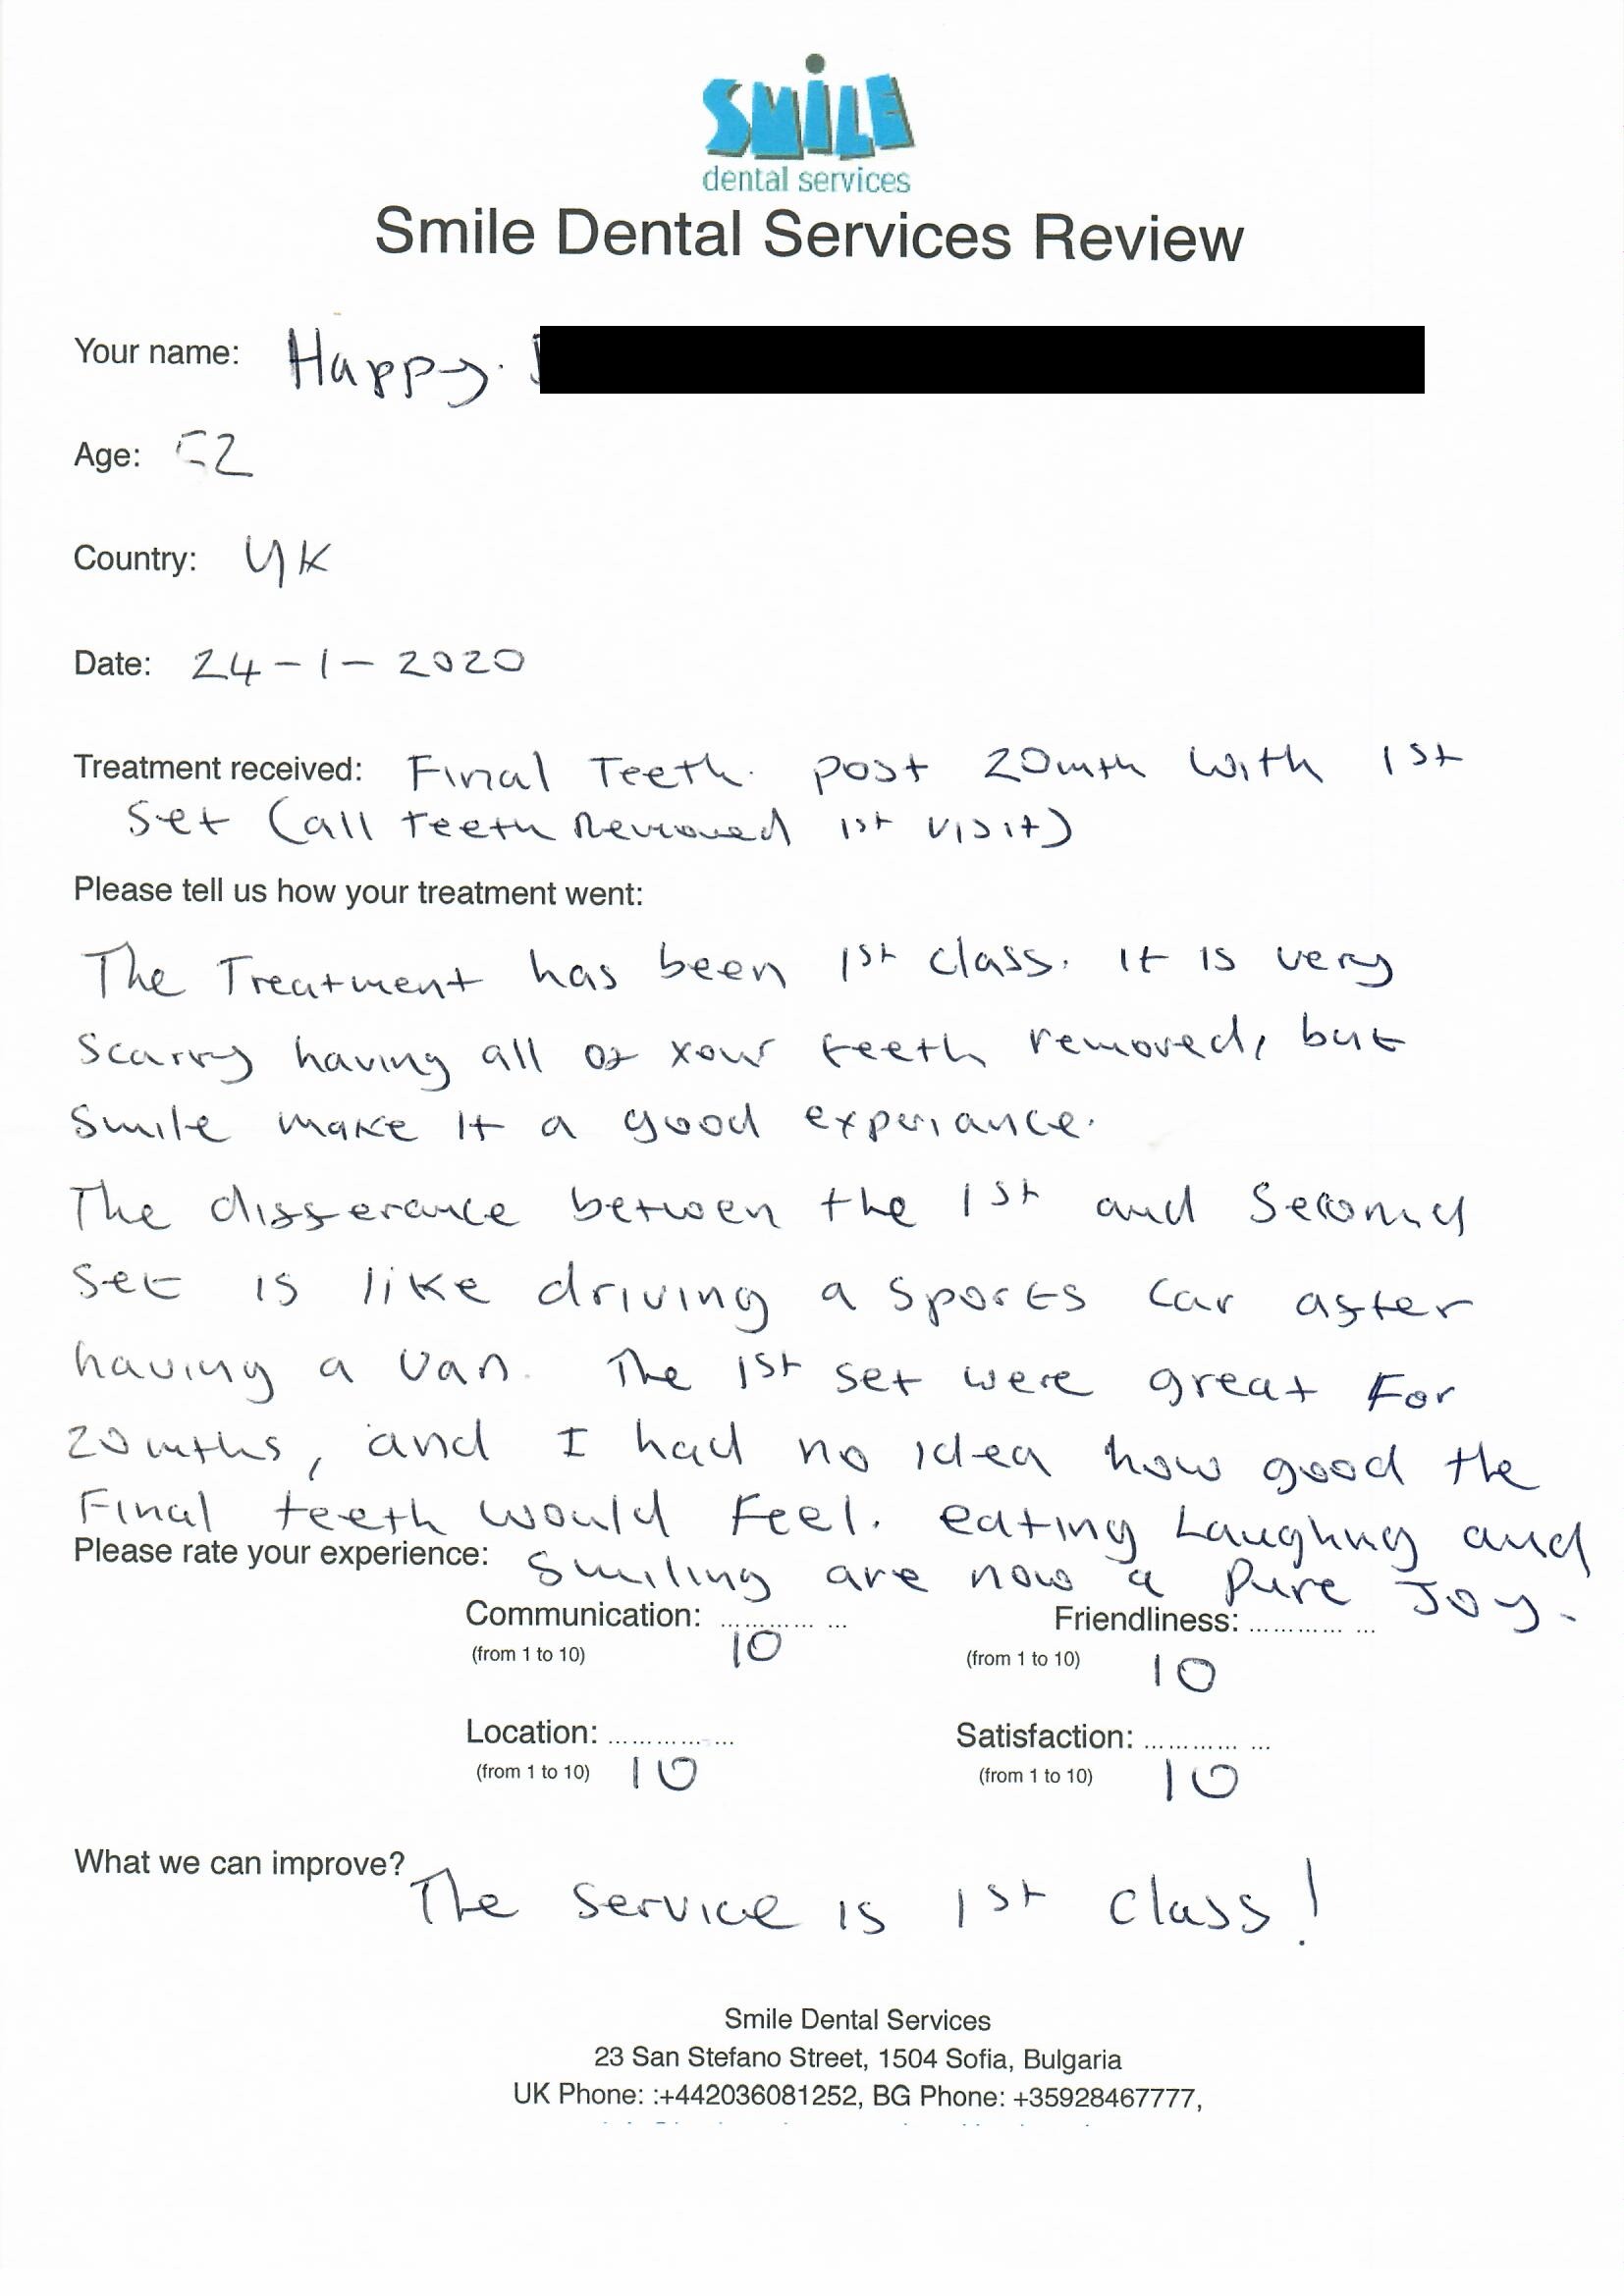 SMILE
dental services
Smile Dental Services Review
Your name: Happy.
Age: 52
Country: UK
Date: 24-1-2020
Treatment received: Final Teeth. post 20mth with 1st
set (all teeth Removed 1st visit)
Please tell us how your treatment went:
The Treatment has been 1st class. it is very
scarry having all of your teeth removed, but
Smile make it a good experiance.
The differance between the 1st and Second
set is like driving a sports car after
having a van. The 1st set were great For
20mths, and I had no idea how good the
Final teeth would Feel. eating Laughing and
Please rate your experience: Smiling are now a Pure Joy.
Communication: ............ ... Friendliness: ............ ...
(from 1 to 10) 10 (from 1 to 10) 10
Location: ............ ... Satisfaction: ............ ...
(from 1 to 10) 10 (from 1 to 10) 10
What we can improve? The service is 1st class!
Smile Dental Services
23 San Stefano Street, 1504 Sofia, Bulgaria
UK Phone: :+442036081252, BG Phone: +35928467777,